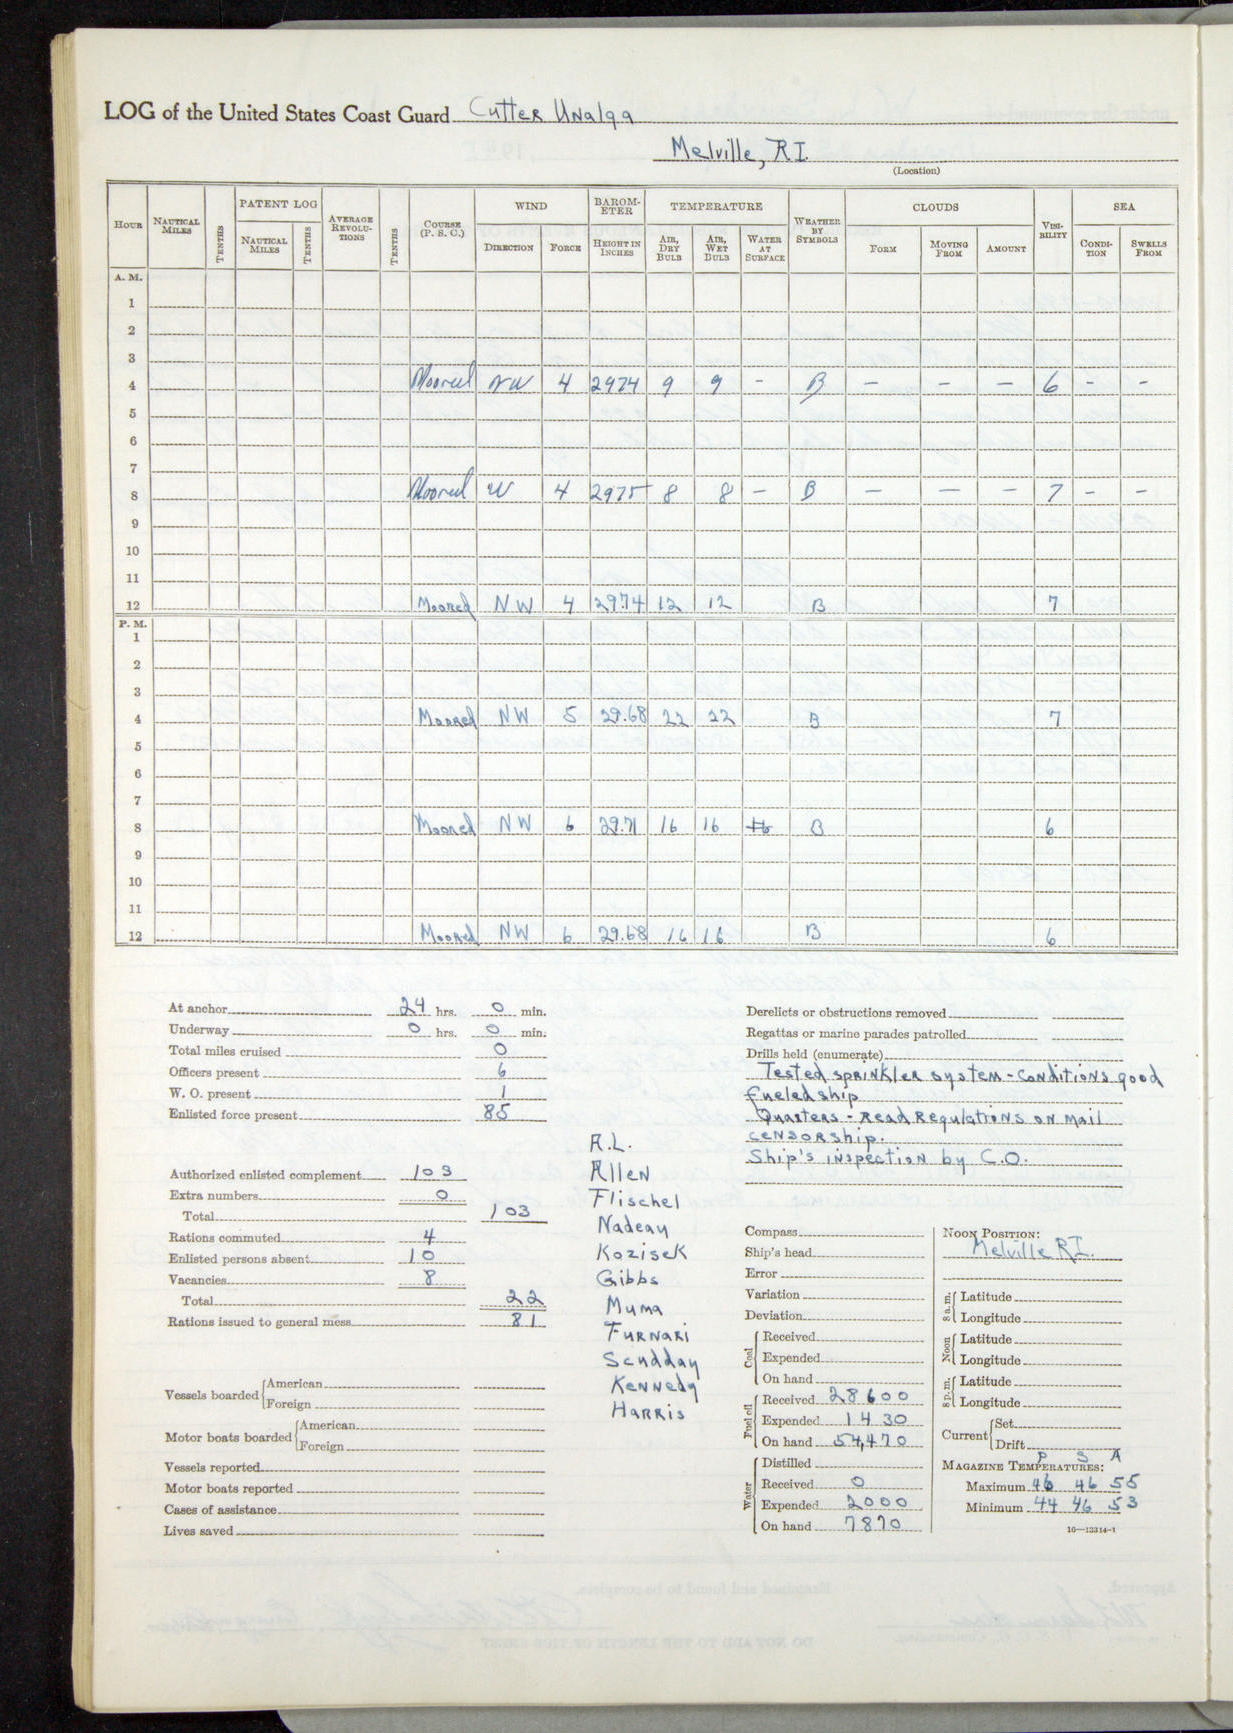 LOG of the United States Coast Guard Cutter Unalga
Melville, R.I.
(Location)
HOUR NAUTICAL MILES TENTHS PATENT LOG NAUTICAL MILES TENTHS AVERAGE REVOLU-TIONS TENTHS COURSE (P. S. C.) WIND DIRECTION FORCE BAROM-ETER HEIGHT IN INCHES TEMPERATURE AIR, DRY BULB AIR, WET BULB WATER AT SURFACE WEATHER BY SYMBOLS CLOUDS FORM MOVING FROM AMOUNT VISI-BILITY SEA CONDI-TION SWELLS FROM
A. M.
1
2
3
4 Moored NW 4 2974 9 9 - B - - - 6 - -
5
6
7
8 Moored W 4 2975 8 8 - B - - - 7 - -
9
10
11
12 Moored NW 4 29.74 12 12 B 7
P. M.
1
2
3
4 Moored NW 5 29.68 22 22 B 7
5
6
7
8 Moored NW 6 29.71 16 16 16 B 6
9
10
11
12 Moored NW 6 29.68 16 16 B 6
At anchor 24 hrs. 0 min.
Underway 0 hrs. 0 min.
Total miles cruised 0
Officers present 6
W. O. present 1
Enlisted force present 85
Authorized enlisted complement 103
Extra numbers 0
Total 103
Rations commuted 4
Enlisted persons absent 10
Vacancies 8
Total 22
Rations issued to general mess 81
Vessels boarded American
Foreign
Motor boats boarded American
Foreign
Vessels reported
Motor boats reported
Cases of assistance
Lives saved
A.L.
Allen
Flischel
Nadeau
Kozisek
Gibbs
Muma
Furnari
Scudday
Kennedy
Harris
Derelicts or obstructions removed
Regattas or marine parades patrolled
Drills held (enumerate)
Tested sprinkler system - conditions good
Fueled ship
Quarters - Read Regulations on mail
censorship.
Ship's inspection by C.O.
Compass
Ship's head
Error
Variation
Deviation
Coal Received
Expended
On hand
Fuel oil Received 28600
Expended 1430
On hand 54,470
Water Distilled
Received 0
Expended 2000
On hand 7870
NOON POSITION:
Melville R.I.
8 a.m. Latitude
Longitude
Noon Latitude
Longitude
8 p.m. Latitude
Longitude
Current Set
Drift
P S A
MAGAZINE TEMPERATURES:
Maximum 46 46 55
Minimum 44 46 53
16—13314-1